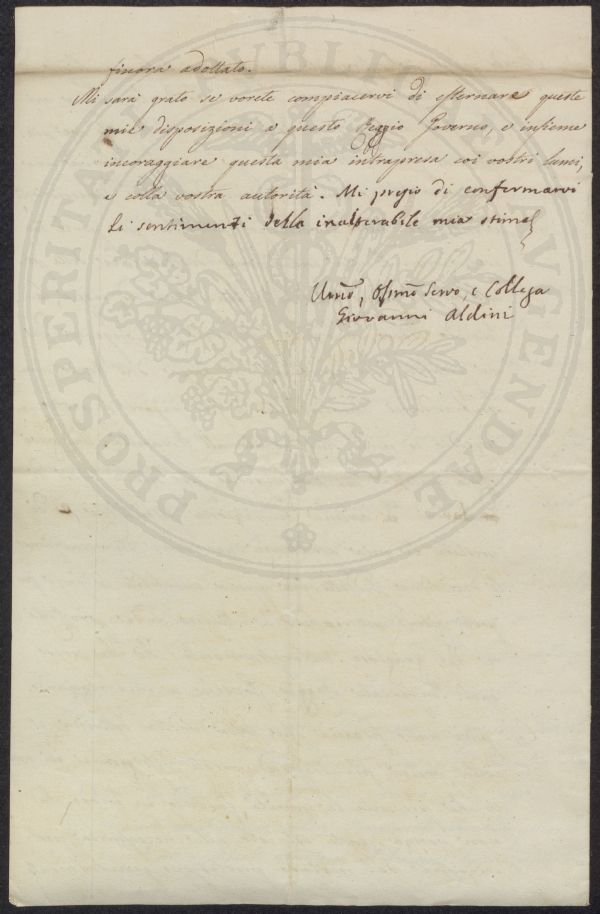 finora adottato.
Mi sarà grato se vorete compiacervi di esternare queste
mie disposizioni a questo Reggio Governo, e insieme
incoraggiare questa mia intrapresa coi vostri lumi,
e colla vostra autorità. Mi pregio di confermarvi
li sentimenti della inalterabile mia stima
Umo, Osmo Servo, e Collega
Giovanni Aldini
PROSPERITATI PUBLICAE AUGENDAE